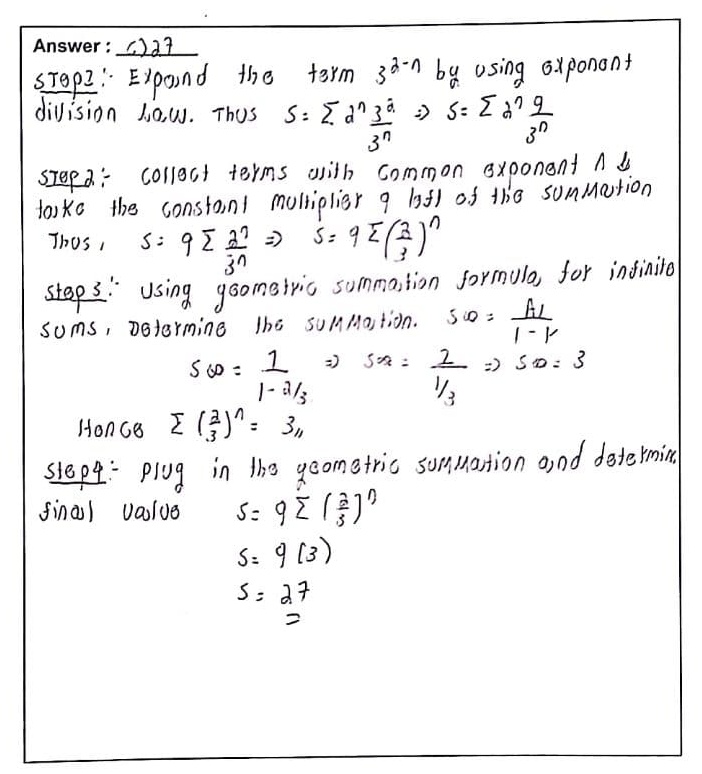 Answer : C) 27
Step 1:- Expand the term 3^{2-n} by using exponent
division law. Thus S = Σ 2^n 3^2/3^n ⇒ S = Σ 2^n 9/3^n
Step 2:- collect terms with common exponent n &
take the constant multiplier 9 left of the summation
Thus, S = 9 Σ 2^n/3^n ⇒ S = 9 Σ (2/3)^n
Step 3:- Using geometric summation formula, for infinite
sums, Determine the summation. S∞ = A1/1-r
S∞ = 1/1-2/3 ⇒ S∞ = 1/1/3 ⇒ S∞ = 3
Hence Σ (2/3)^n = 3,,
Step 4:- Plug in the geometric summation and determine
final value S = 9 Σ (2/3)^n
S = 9(3)
S = 27